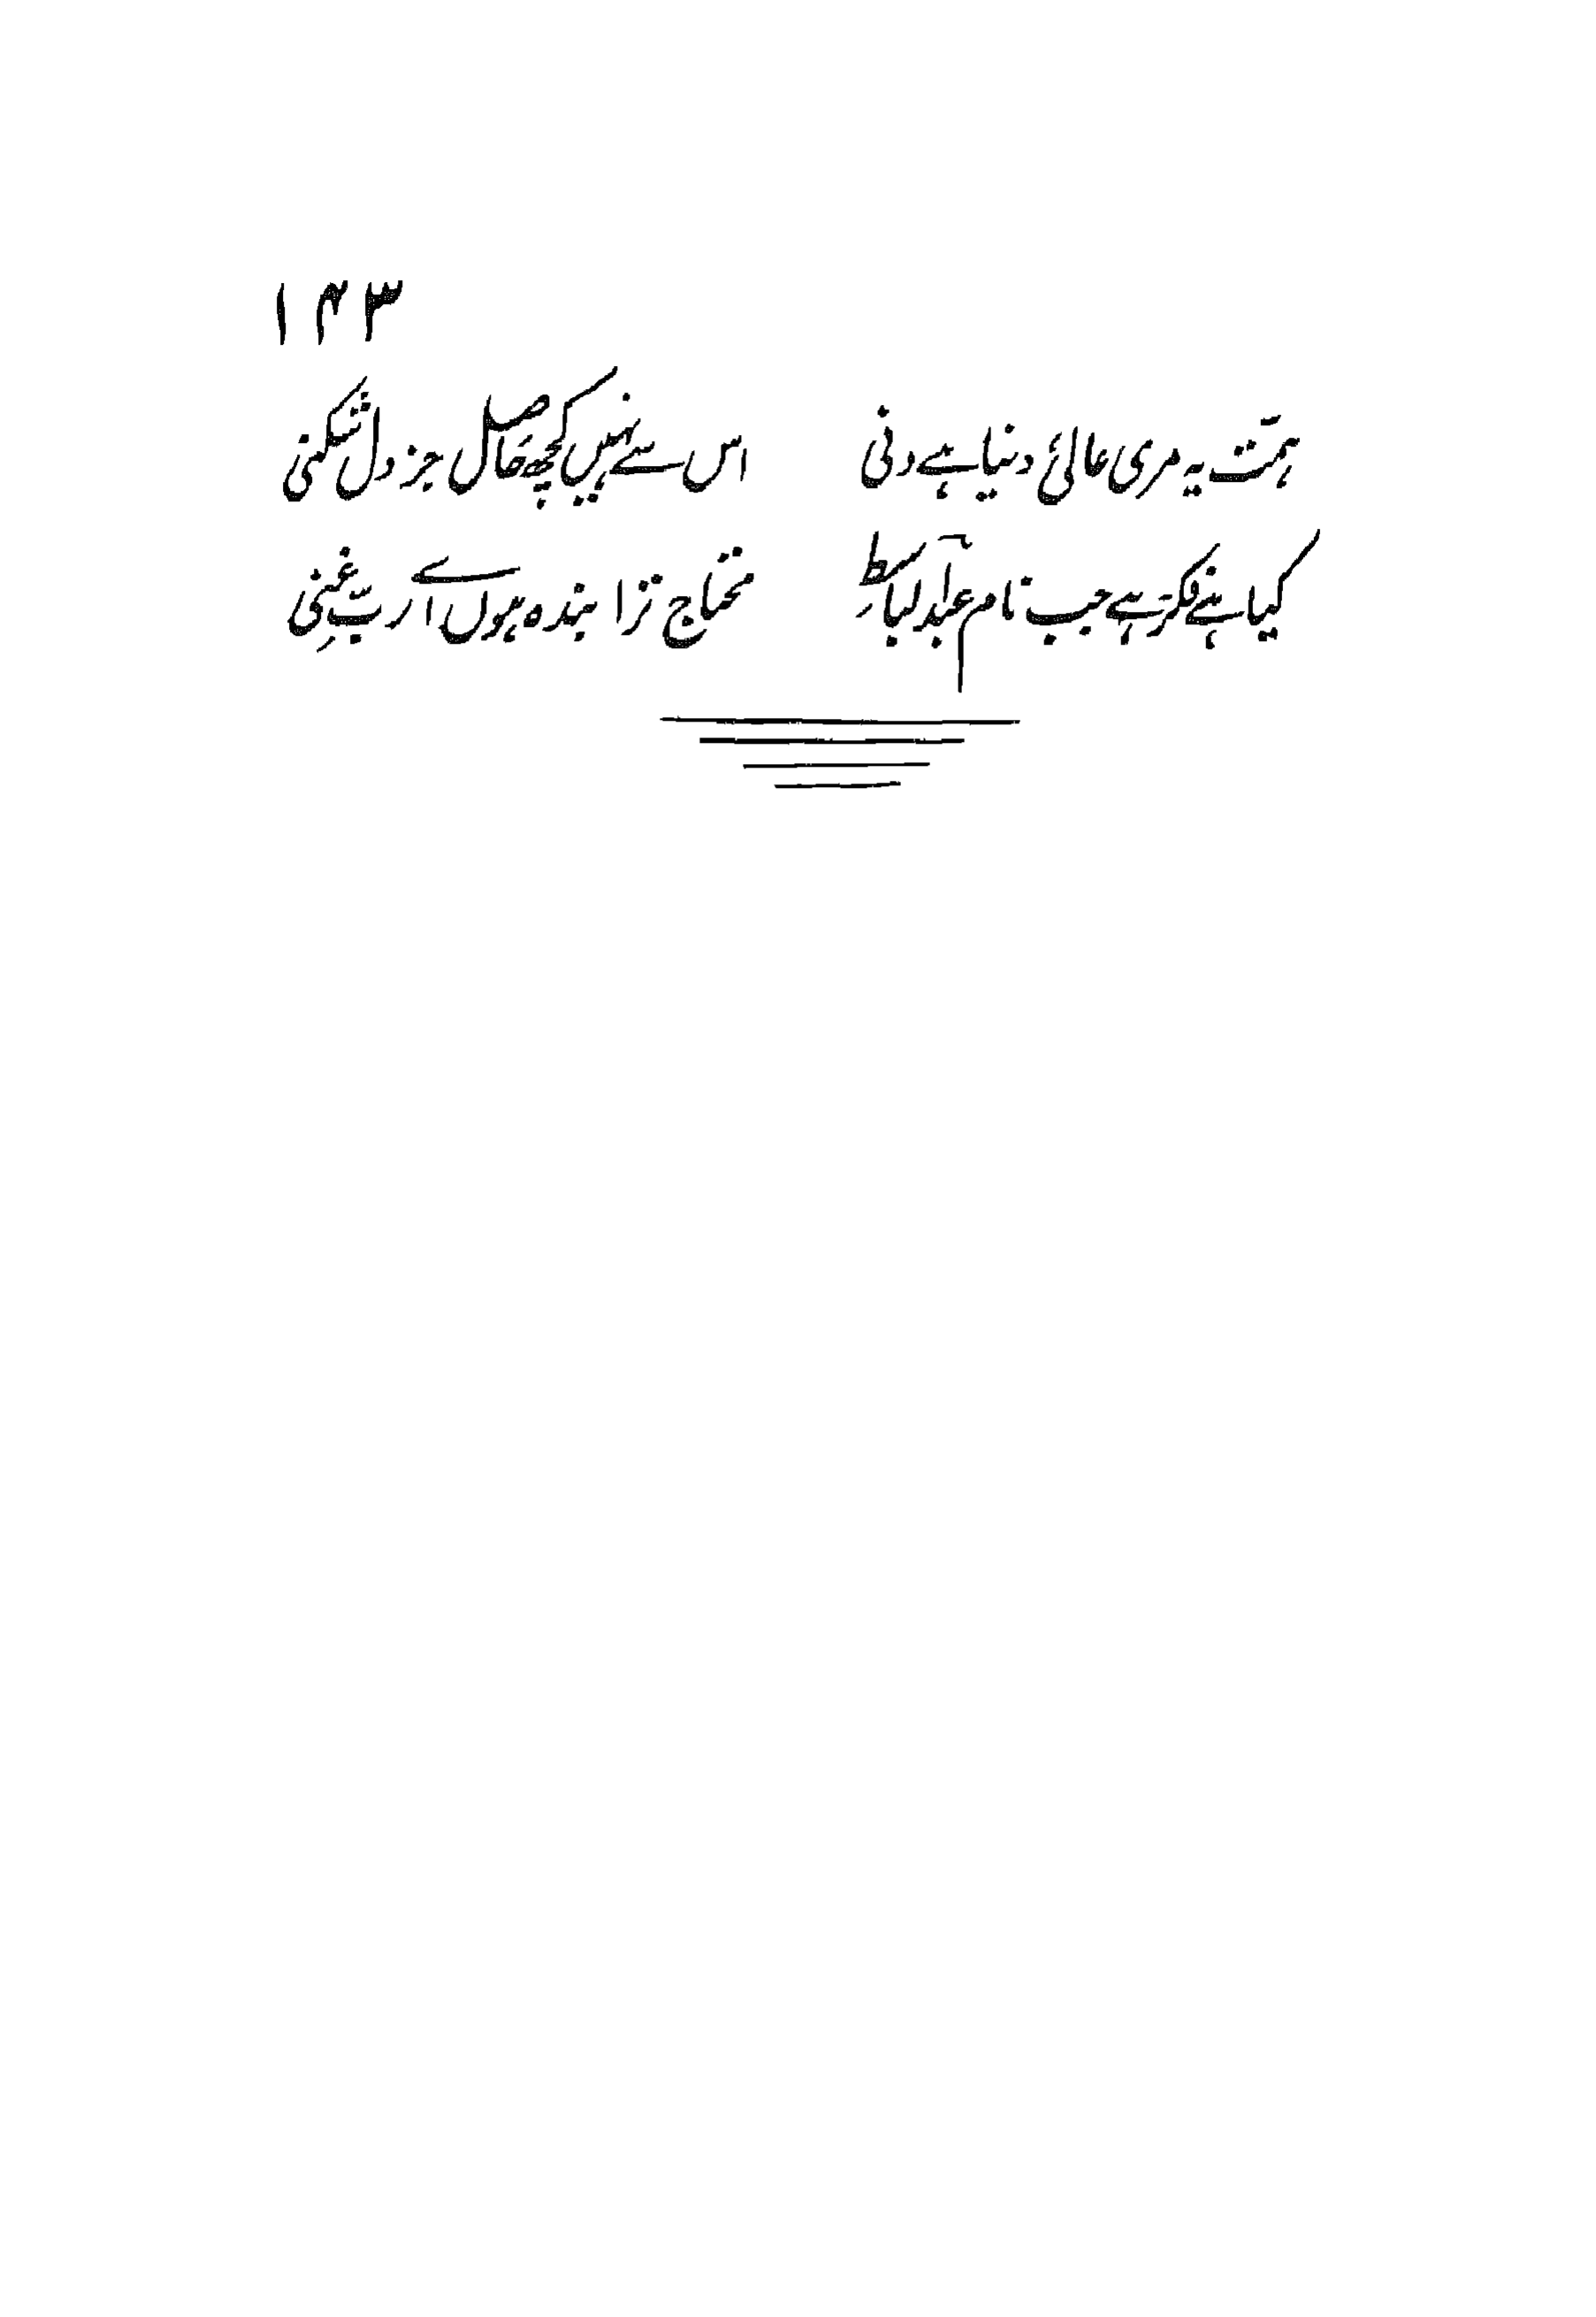 ۱۴۳
ہمّت یہ مری عالیٔ دنیا ہے دنی اس سے نہیں کچھ حاصل جز دل شکنی
کیا ہنے فکر ہے جب نام عبدالباسط محتاج ترا بندہ ہوں اے ربِّ غنی